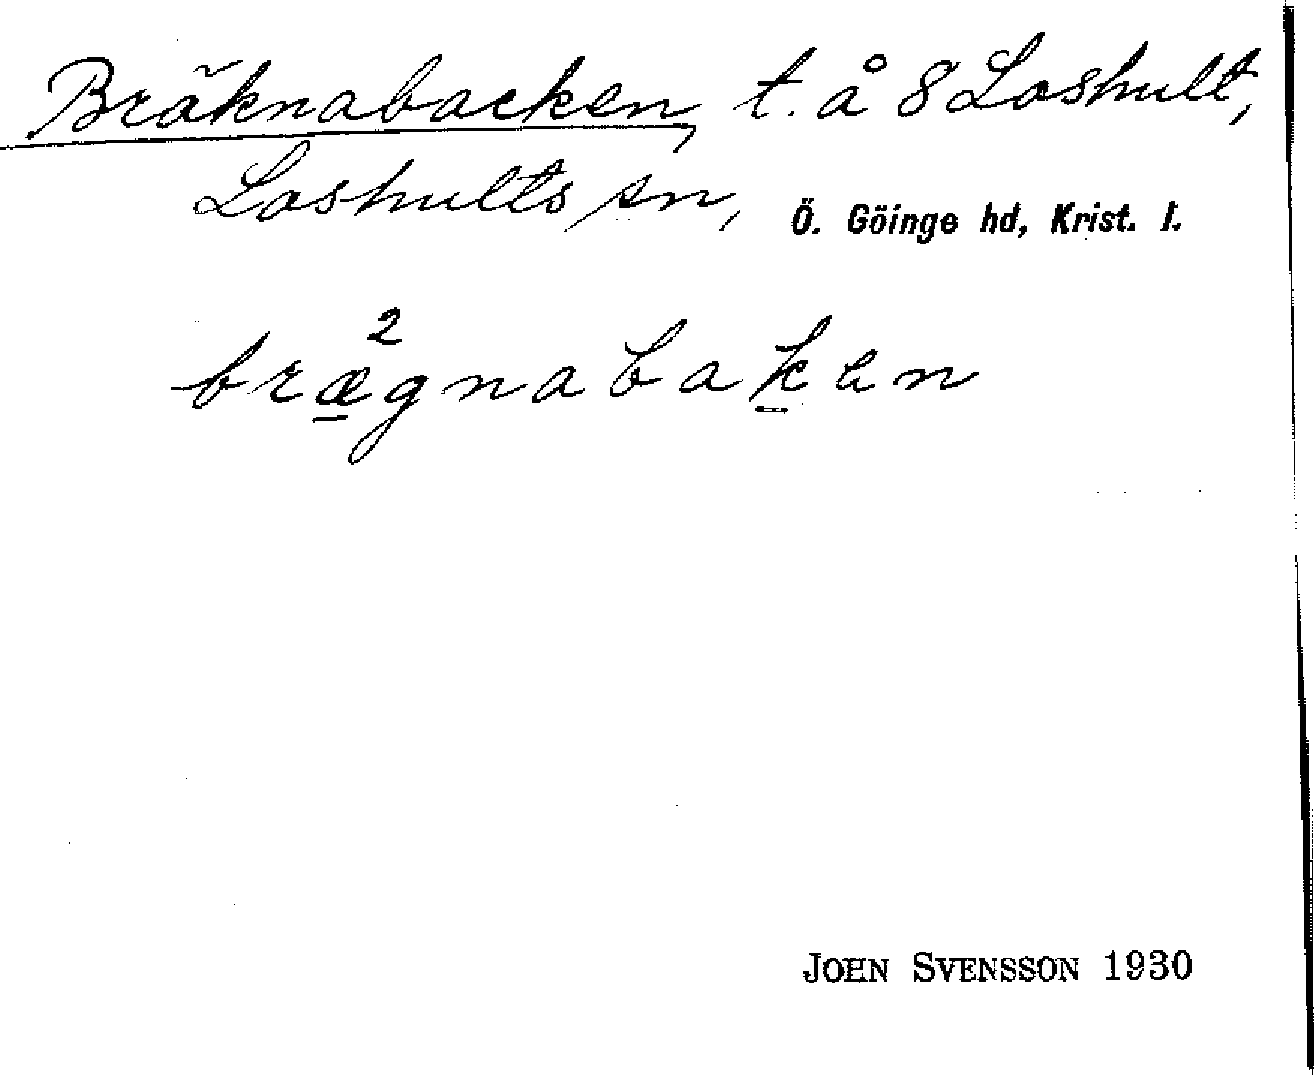 Bräknabacken, t. å 8 Loshult,
Loshults sn, Ö. Göinge hd, Krist. l.
bræ²gnabaken
JOHN SVENSSON 1930